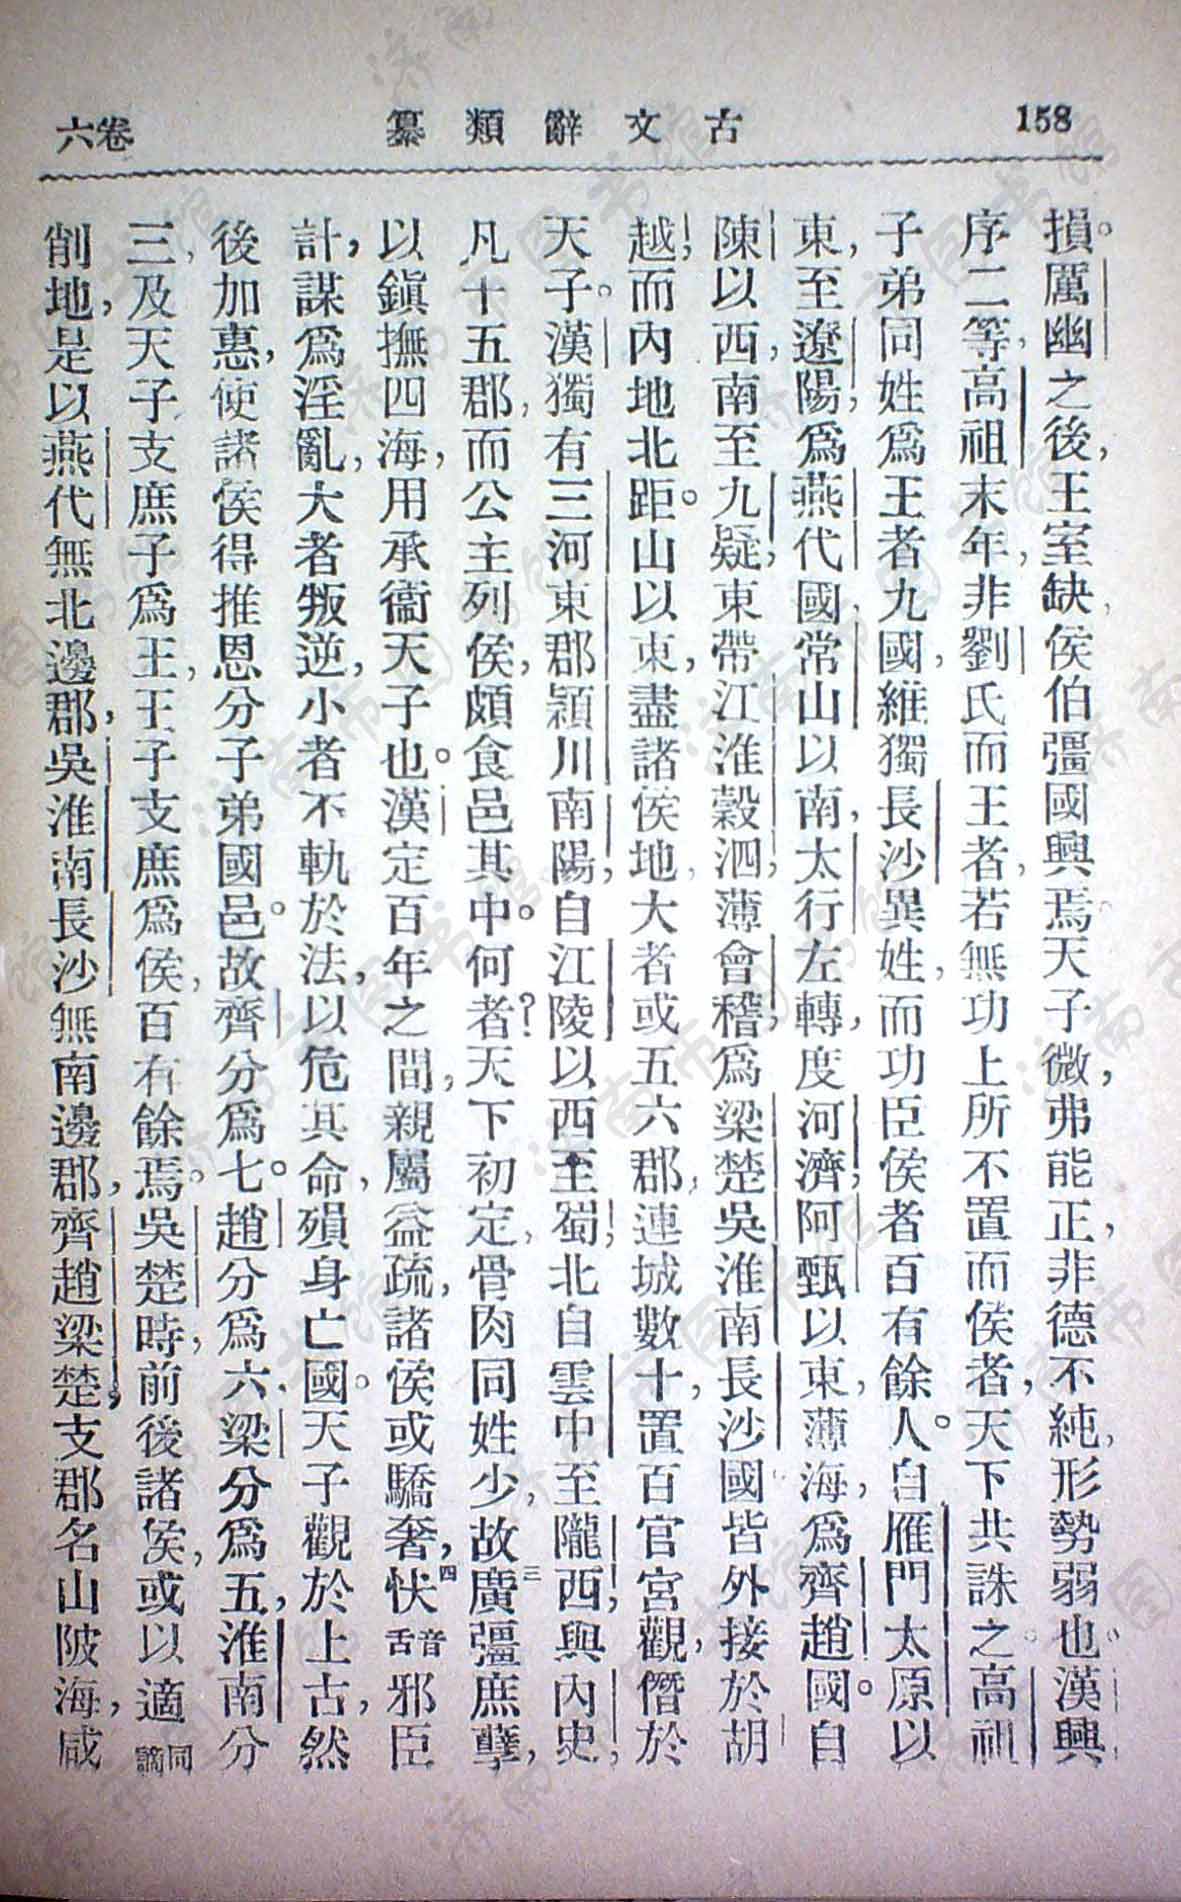 158
古文辭類纂
卷六
損。厲幽之後，王室缺，侯伯彊國興焉。天子微，弗能正，非德不純，形勢弱也。漢興
序二等，高祖末年，非劉氏而王者，若無功上所不置而侯者，天下共誅之。高祖
子弟同姓爲王者九國，維獨長沙異姓，而功臣侯者百有餘人。自雁門太原以
東，至遼陽，爲燕代國，常山以南，太行左轉，度河濟，阿甄以東，薄海，爲齊趙國。自
陳以西，南至九疑，東帶江淮穀泗，薄會稽，爲梁楚吳淮南長沙國，皆外接於胡
越，而內地北距。山以東，盡諸侯地，大者或五六郡，連城數十，置百官宮觀，僭於
天子。漢獨有三河東郡潁川南陽，自江陵以西至蜀，北自雲中至隴西，與內史，
凡十五郡，而公主列侯，頗食邑其中。何者？天下初定，骨肉同姓少，故廣三彊庶孽，
以鎭撫四海，用承衞天子也。漢定百年之間，親屬益疏，諸侯或驕奢，忕四音舌邪臣
計，謀爲淫亂，大者叛逆，小者不軌於法，以危其命，殞身亡國。天子觀於上古，然
後加惠，使諸侯得推恩分子弟國邑。故齊分爲七。趙分爲六，梁分爲五，淮南分
三，及天子支庶子爲王，王子支庶爲侯，百有餘焉。吳楚時，前後諸侯，或以適同謫
削地，是以燕代無北邊郡，吳淮南長沙無南邊郡，齊趙梁楚，支郡名山陂海，咸